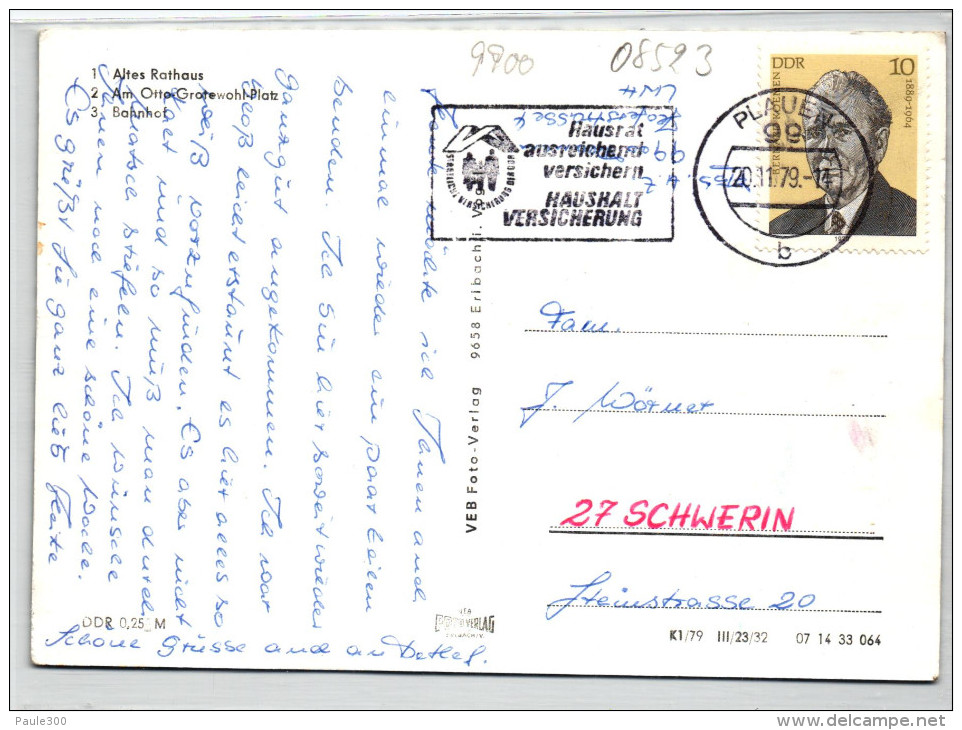 9900 08523
1 Altes Rathaus
2 Am Otto-Grotewohl-Platz
3 Bahnhof
DDR 10
1880-1964
BERNARD KOENEN
PLAUEN
99
20.11.79.-14
b
Hausrat
ausreichend
versichern
HAUSHALT
VERSICHERUNG
STAATLICHE VERSICHERUNG DER DDR
Heute möchte ich Ihnen auch
einmal wieder ein paar Zeilen
senden. Ich bin hier soweit wieder
ganz gut angekommen. Ich war
bloß leicht erstaunt es hier alles so
weiß vorzufinden. Es aber nicht
kalt und so muß man durch
Matsch stiefeln. Ich wünsche
Ihnen noch eine schöne Woche.
Es grüßt Sie ganz lieb
Schöne Grüsse auch an Detlef.
VEB Foto-Verlag 9658 Erlbach i. V.
Fam.
J. Wörner
27 SCHWERIN
Steinstrasse 20
DDR 0,25 M
K1/79 III/23/32 07 14 33 064
Paule300
www.delcampe.net